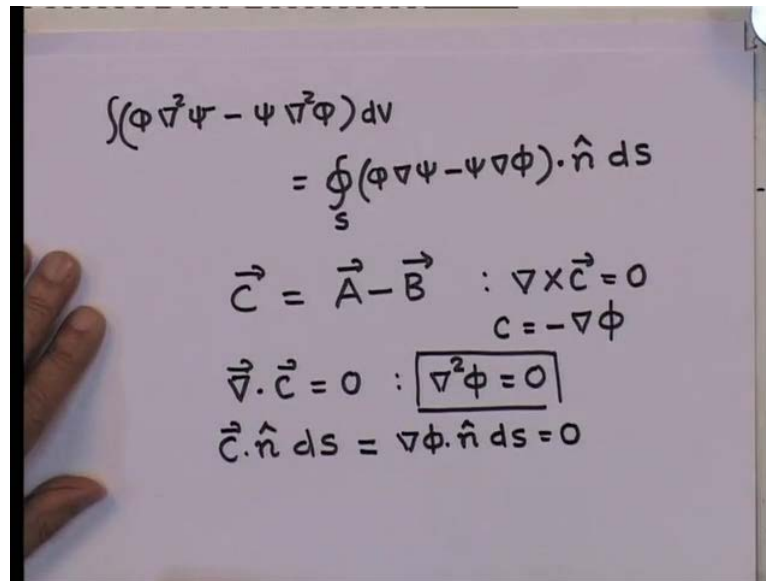 ∫(φ∇²ψ - ψ∇²φ)dV
= ∮_S (φ∇ψ - ψ∇φ)·n̂ ds
C⃗ = A⃗ - B⃗ : ∇×C⃗ = 0
C = -∇φ
∇⃗·C⃗ = 0 : ∇²φ = 0
C⃗.n̂ ds = ∇φ.n̂ ds = 0